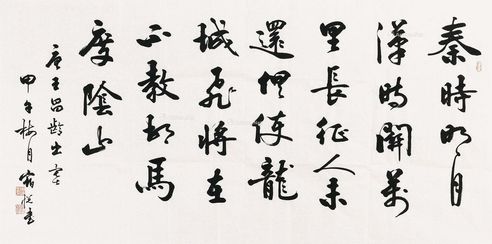 秦時明月
漢時關萬
里長征人未
還但使龍
城飛將在
不教胡馬
度陰山
唐王昌齡出塞
甲午梅月